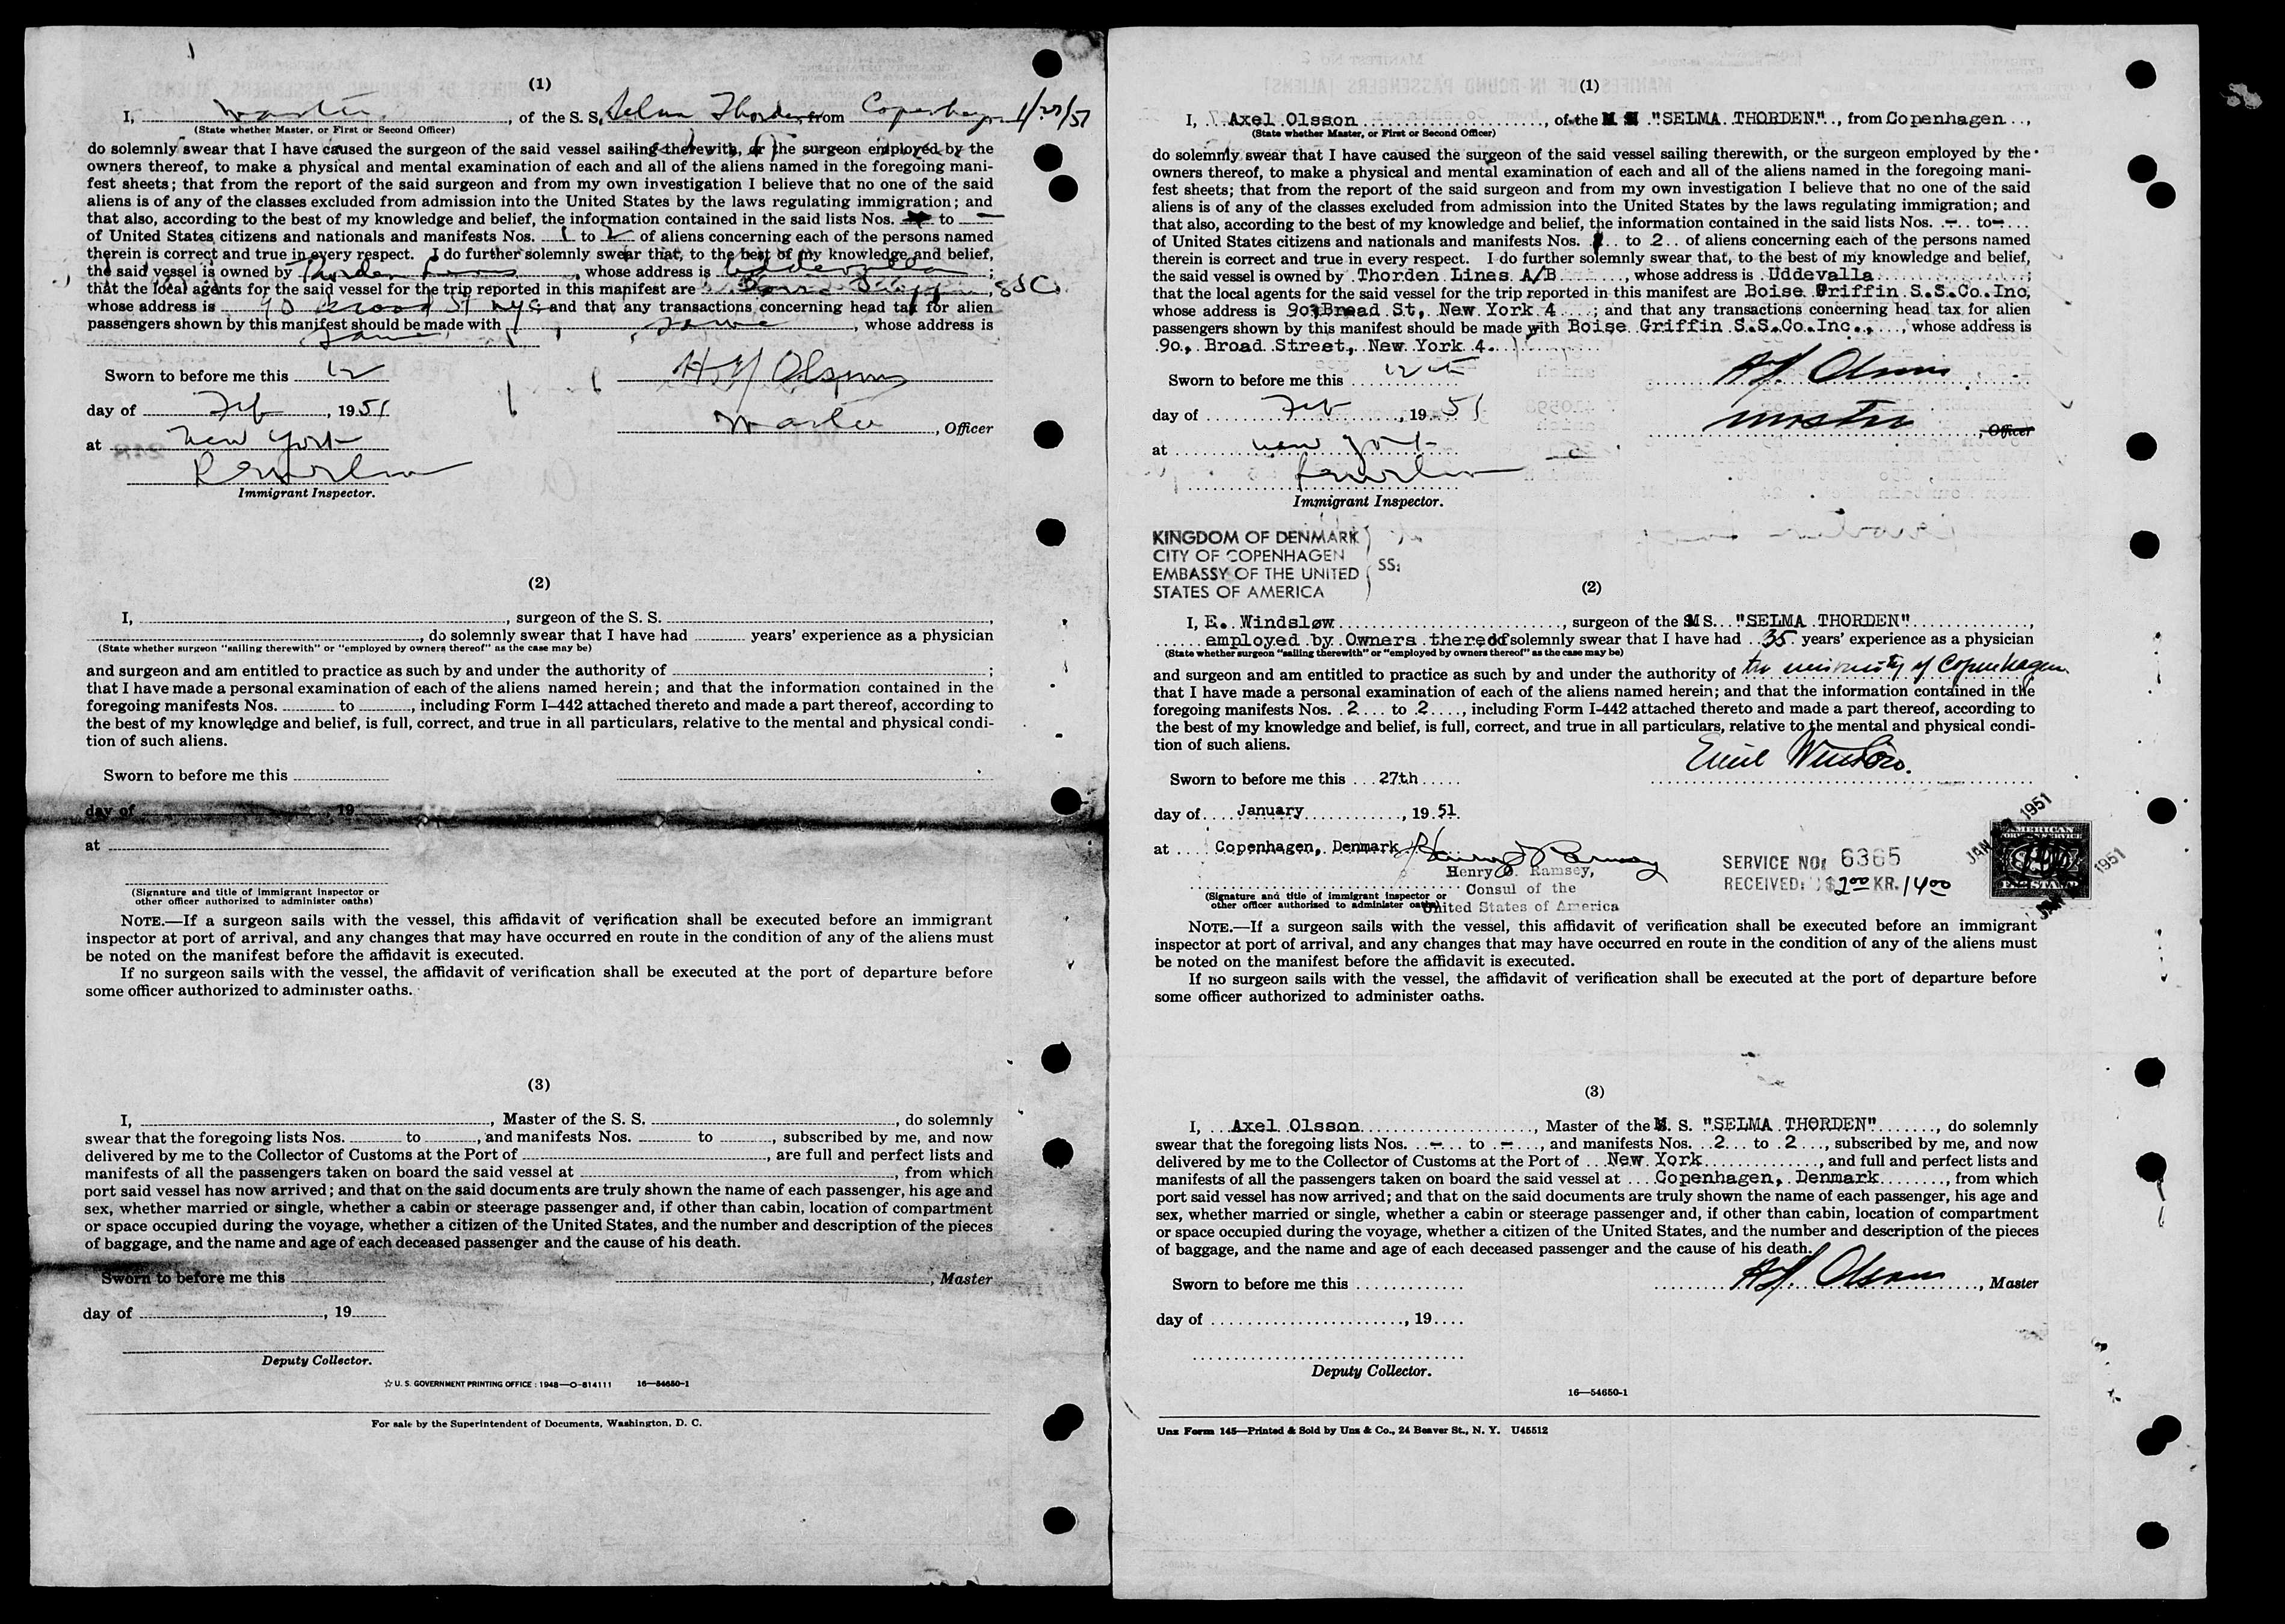 (1)
I, Master, of the S. S. Selma Thorden from Copenhagen 1/27/51
(State whether Master, or First or Second Officer)
do solemnly swear that I have caused the surgeon of the said vessel sailing therewith, or the surgeon employed by the
owners thereof, to make a physical and mental examination of each and all of the aliens named in the foregoing mani-
fest sheets; that from the report of the said surgeon and from my own investigation I believe that no one of the said
aliens is of any of the classes excluded from admission into the United States by the laws regulating immigration; and
that also, according to the best of my knowledge and belief, the information contained in the said lists Nos. — to —
of United States citizens and nationals and manifests Nos. 1 to 2 of aliens concerning each of the persons named
therein is correct and true in every respect. I do further solemnly swear that, to the best of my knowledge and belief,
the said vessel is owned by Thorden Lines, whose address is Uddevalla;
that the local agents for the said vessel for the trip reported in this manifest are SSCo.
whose address is 90 Broad St NYC and that any transactions concerning head tax for alien
passengers shown by this manifest should be made with same, whose address is
same
Sworn to before me this 12 H Y Olsson
day of Feb, 1951 Master, Officer
at New York
Immigrant Inspector.
(2)
I, , surgeon of the S. S. ,
, do solemnly swear that I have had years' experience as a physician
(State whether surgeon "sailing therewith" or "employed by owners thereof" as the case may be)
and surgeon and am entitled to practice as such by and under the authority of ;
that I have made a personal examination of each of the aliens named herein; and that the information contained in the
foregoing manifests Nos. to , including Form I-442 attached thereto and made a part thereof, according to
the best of my knowledge and belief, is full, correct, and true in all particulars, relative to the mental and physical condi-
tion of such aliens.
Sworn to before me this
day of , 19
at
(Signature and title of immigrant inspector or
other officer authorized to administer oaths)
NOTE.—If a surgeon sails with the vessel, this affidavit of verification shall be executed before an immigrant
inspector at port of arrival, and any changes that may have occurred en route in the condition of any of the aliens must
be noted on the manifest before the affidavit is executed.
If no surgeon sails with the vessel, the affidavit of verification shall be executed at the port of departure before
some officer authorized to administer oaths.
(3)
I, , Master of the S. S. , do solemnly
swear that the foregoing lists Nos. to , and manifests Nos. to , subscribed by me, and now
delivered by me to the Collector of Customs at the Port of , are full and perfect lists and
manifests of all the passengers taken on board the said vessel at , from which
port said vessel has now arrived; and that on the said documents are truly shown the name of each passenger, his age and
sex, whether married or single, whether a cabin or steerage passenger and, if other than cabin, location of compartment
or space occupied during the voyage, whether a citizen of the United States, and the number and description of the pieces
of baggage, and the name and age of each deceased passenger and the cause of his death.
Sworn to before me this , Master
day of , 19
Deputy Collector.
☆ U. S. GOVERNMENT PRINTING OFFICE : 1948—O-814111 16—54650-1
For sale by the Superintendent of Documents, Washington, D. C.
(1)
I, Axel Olsson, of the M S "SELMA THORDEN", from Copenhagen,
(State whether Master, or First or Second Officer)
do solemnly swear that I have caused the surgeon of the said vessel sailing therewith, or the surgeon employed by the
owners thereof, to make a physical and mental examination of each and all of the aliens named in the foregoing mani-
fest sheets; that from the report of the said surgeon and from my own investigation I believe that no one of the said
aliens is of any of the classes excluded from admission into the United States by the laws regulating immigration; and
that also, according to the best of my knowledge and belief, the information contained in the said lists Nos. - to -
of United States citizens and nationals and manifests Nos. 1 to 2 of aliens concerning each of the persons named
therein is correct and true in every respect. I do further solemnly swear that, to the best of my knowledge and belief,
the said vessel is owned by Thorden Lines A/B, whose address is Uddevalla;
that the local agents for the said vessel for the trip reported in this manifest are Boise Griffin S.S.Co.Inc,
whose address is 90, Broad St, New York 4; and that any transactions concerning head tax for alien
passengers shown by this manifest should be made with Boise Griffin S.S.Co.Inc., whose address is
90, Broad Street, New York 4.
Sworn to before me this 12th HY. Olsson
day of Feb, 1951 Master, Officer
at New York
Immigrant Inspector.
KINGDOM OF DENMARK
CITY OF COPENHAGEN
EMBASSY OF THE UNITED
STATES OF AMERICA
SS:
(2)
I, E. Windsløw, surgeon of the M S. "SELMA THORDEN",
employed by Owners thereof do solemnly swear that I have had 35 years' experience as a physician
(State whether surgeon "sailing therewith" or "employed by owners thereof" as the case may be)
and surgeon and am entitled to practice as such by and under the authority of the university of Copenhagen
that I have made a personal examination of each of the aliens named herein; and that the information contained in the
foregoing manifests Nos. 2 to 2, including Form I-442 attached thereto and made a part thereof, according to
the best of my knowledge and belief, is full, correct, and true in all particulars, relative to the mental and physical condi-
tion of such aliens.
Emil Windsløw.
Sworn to before me this 27th
day of January, 1951.
at Copenhagen, Denmark
Henry O. Ramsey,
Consul of the
United States of America
(Signature and title of immigrant inspector or
other officer authorized to administer oaths)
SERVICE NO: 6365
RECEIVED: $2.00 KR. 14.00
AMERICAN
FOREIGN SERVICE
FEE STAMP
JAN 1951
1951
NOTE.—If a surgeon sails with the vessel, this affidavit of verification shall be executed before an immigrant
inspector at port of arrival, and any changes that may have occurred en route in the condition of any of the aliens must
be noted on the manifest before the affidavit is executed.
If no surgeon sails with the vessel, the affidavit of verification shall be executed at the port of departure before
some officer authorized to administer oaths.
(3)
I, Axel Olsson, Master of the M. S. "SELMA THORDEN", do solemnly
swear that the foregoing lists Nos. - to -, and manifests Nos. 2 to 2, subscribed by me, and now
delivered by me to the Collector of Customs at the Port of New York, and full and perfect lists and
manifests of all the passengers taken on board the said vessel at Copenhagen, Denmark, from which
port said vessel has now arrived; and that on the said documents are truly shown the name of each passenger, his age and
sex, whether married or single, whether a cabin or steerage passenger and, if other than cabin, location of compartment
or space occupied during the voyage, whether a citizen of the United States, and the number and description of the pieces
of baggage, and the name and age of each deceased passenger and the cause of his death.
Sworn to before me this HY. Olsson, Master
day of , 19
Deputy Collector.
16—54650-1
Unz Form 145—Printed & Sold by Unz & Co., 24 Beaver St., N. Y. U45512